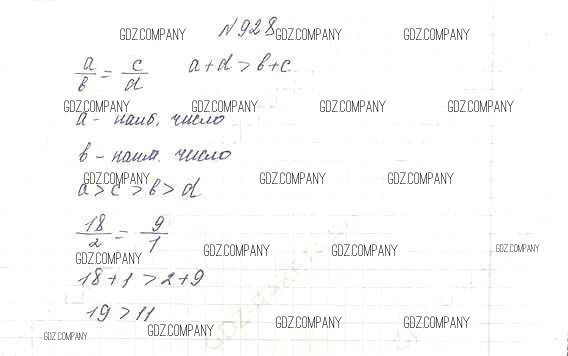 GDZ.COMPANY №928 GDZ.COMPANY GDZ.COMPANY
a/в = c/d a+d > в+c
GDZ.COMPANY GDZ.COMPANY GDZ.COMPANY GDZ.COMPANY
a - наиб. число
в - наим. число
GDZ.COMPANY GDZ.COMPANY GDZ.COMPANY
a > c > в > d
18/2 = 9/1
GDZ.COMPANY GDZ.COMPANY GDZ.COMPANY GDZ.COMPANY
18+1 > 2+9
19 > 11
GDZ.COMPANY GDZ.COMPANY GDZ.COMPANY GDZ.COMPANY